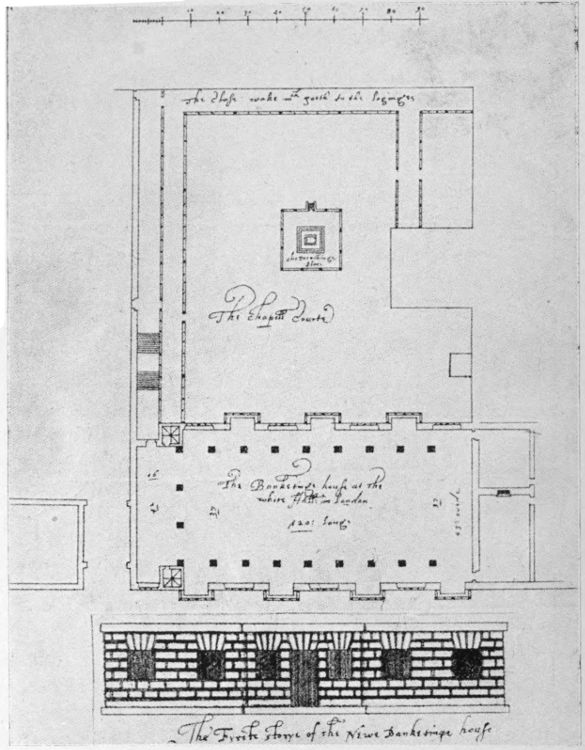 10 20 30 40 50 60 70 80 90
The Close wake wth goeth to the loginges
the preachinge place
The Chapell Courte
The Banketinge house at the
white Hall in London
120: longe
The Firste storye of the Newe Banketinge house